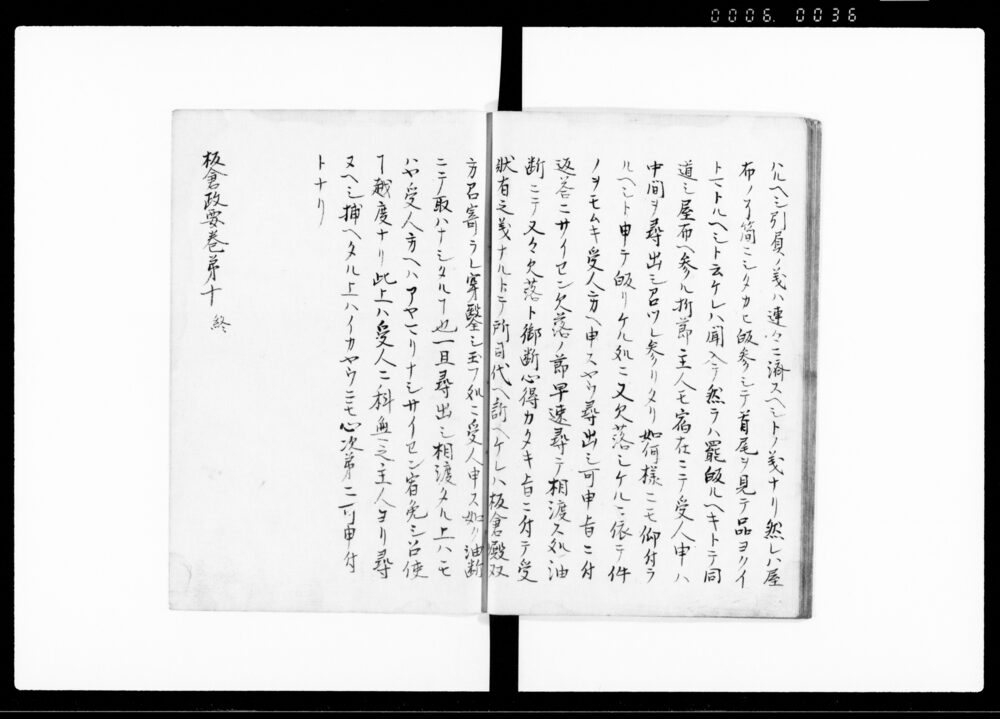 0006. 0036
ハルヘシ引負ノ義ハ連々ニ済スヘシトノ義ナリ然レハ屋
布ノ了簡ニシタカヒ皈参シテ首尾ヲ見テ品ヨリイ
トマトルヘシト云ケレハ聞入テ然ラハ罷皈ルヘキトテ同
道シ屋布ヘ参ル折節主人モ宿在ニテ受人申ハ
中間ヲ尋出シ召ツレ参リタリ如何様ニモ仰付ラ
ルヘシト申テ皈リケル処ニ又欠落シケルニ依テ件
ノヲモムキ受人方ヘ申スヤウ尋出シ可申旨ニ付
返荅ニサイセン欠落ノ節早速尋テ相渡ス処油
断ニテ又々欠落ト御断心得カタキ旨ニ付テ受
状有之義ナルトテ所司代ヘ訴ヘケレハ板倉殿双
方召寄ラレ穿鑿シ玉フ処ニ受人申ス如ク油断
ニテ取ハナシタルヿ也一旦尋出シ相渡タル上ハモ
ハヤ受人方ヘハアヤマリナシサイセン宿免シ召使
ヿ越度ナリ此上ハ受人ニ科無之主人ヨリ尋
ヌヘシ捕ヘタル上ハイカヤウニモ心次第ニ可申付
トナリ
板倉政要巻第十 終